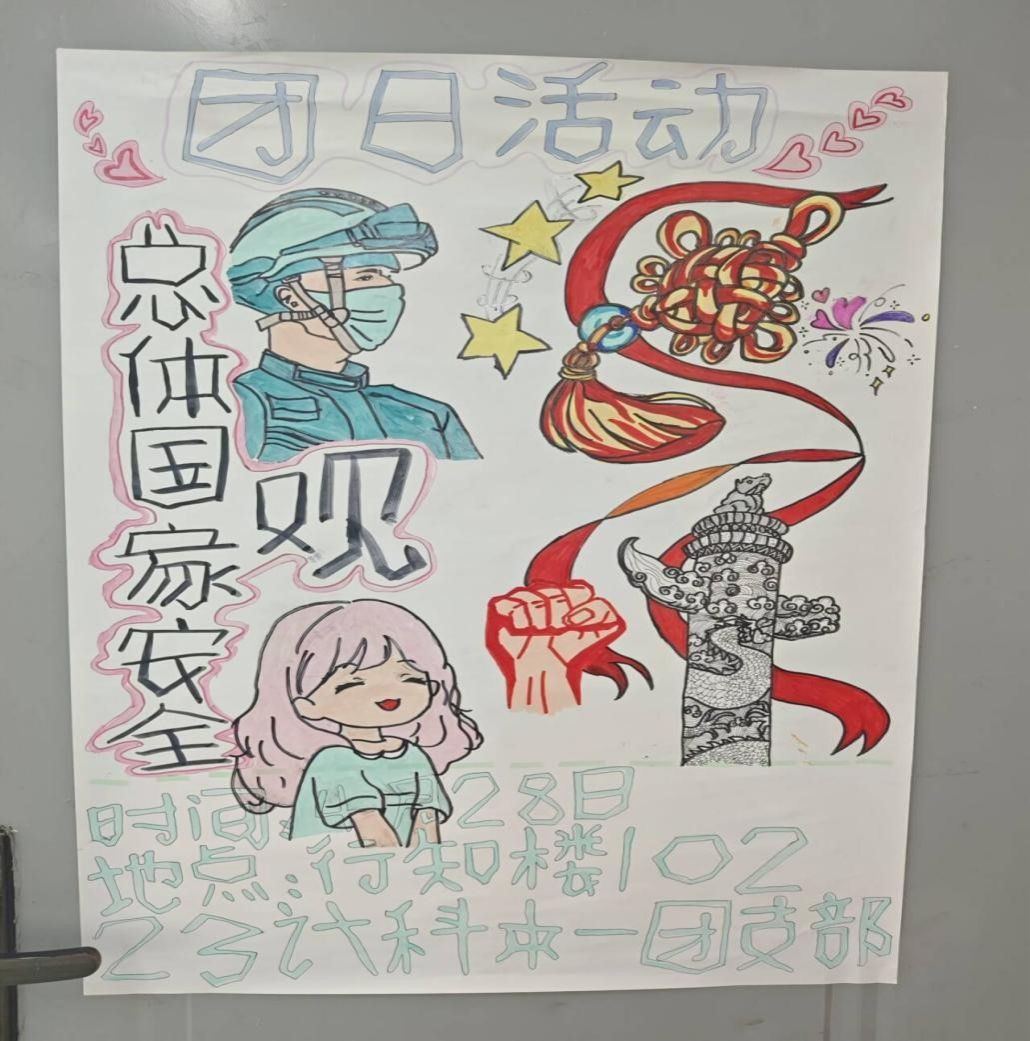 团日活动
总体国家安全观
时间: 月28日
地点:行知楼102
23计科本一团支部